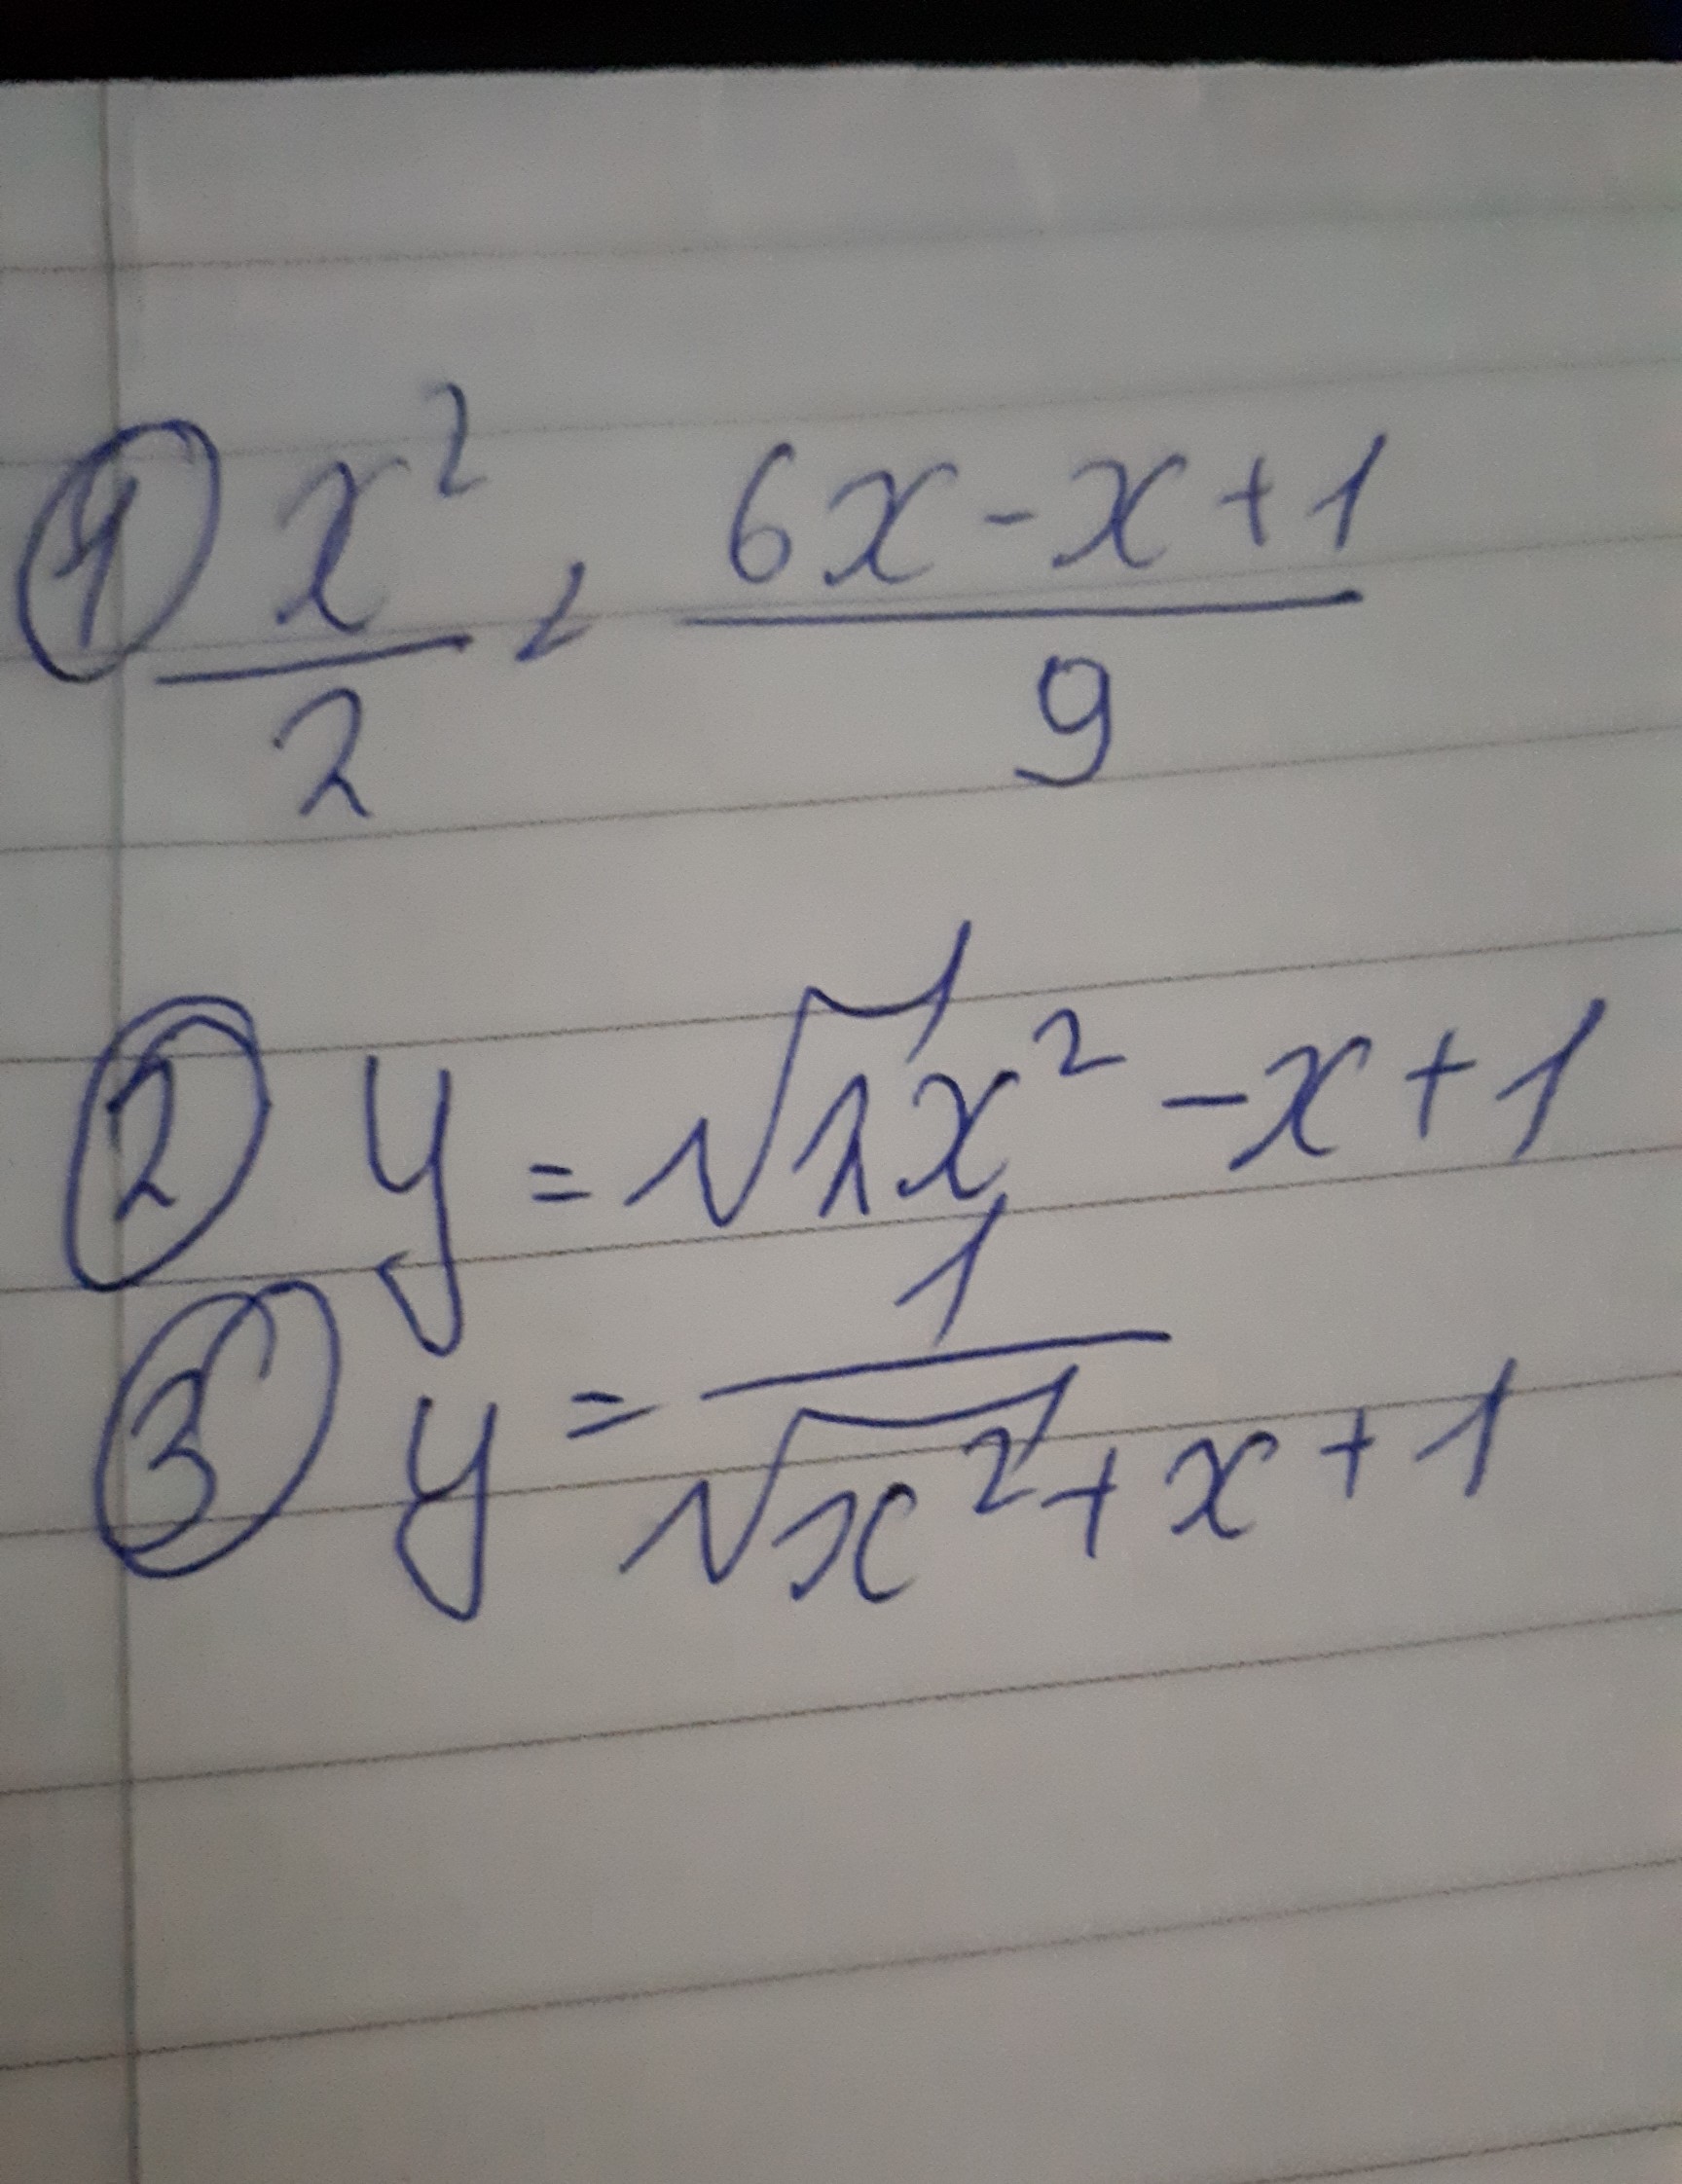 ① x²/2 , (6x-x+1)/9
② y = √2x² -x+1
③ y = 1/(√x²+x+1)